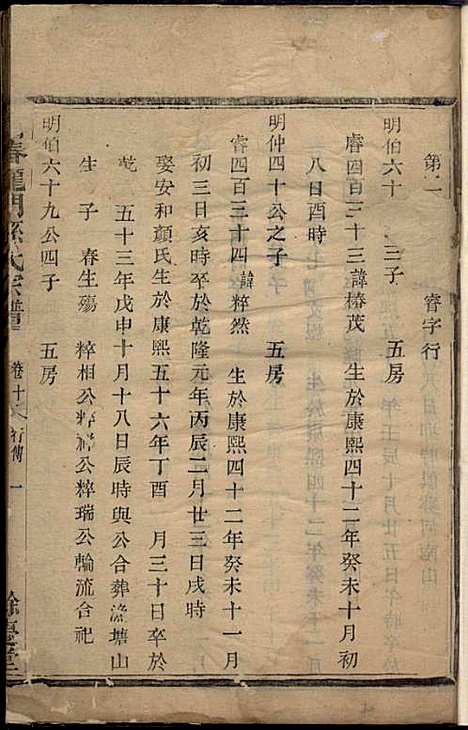 第二 睿字行
明伯六十 三子 五房
睿四百三十三諱椿茂 生於康熙四十二年癸未十月初
八日酉時
明仲四十公之子 五房
睿四百三十四諱粹然 生於康熙四十二年癸未十一月
初三日亥時卒於乾隆元年丙辰二月廿三日戌時
娶安和顏氏生於康熙五十六年丁酉 月三十日卒於
乾 五十三年戊申十月十八日辰時與公合葬漁塘山
生子 春生殤 粹相公粹 公粹瑞公輪流合祀
明伯六十九公四子 五房
春龍門孫氏宗譜 卷十 行傳 一
餘慶堂